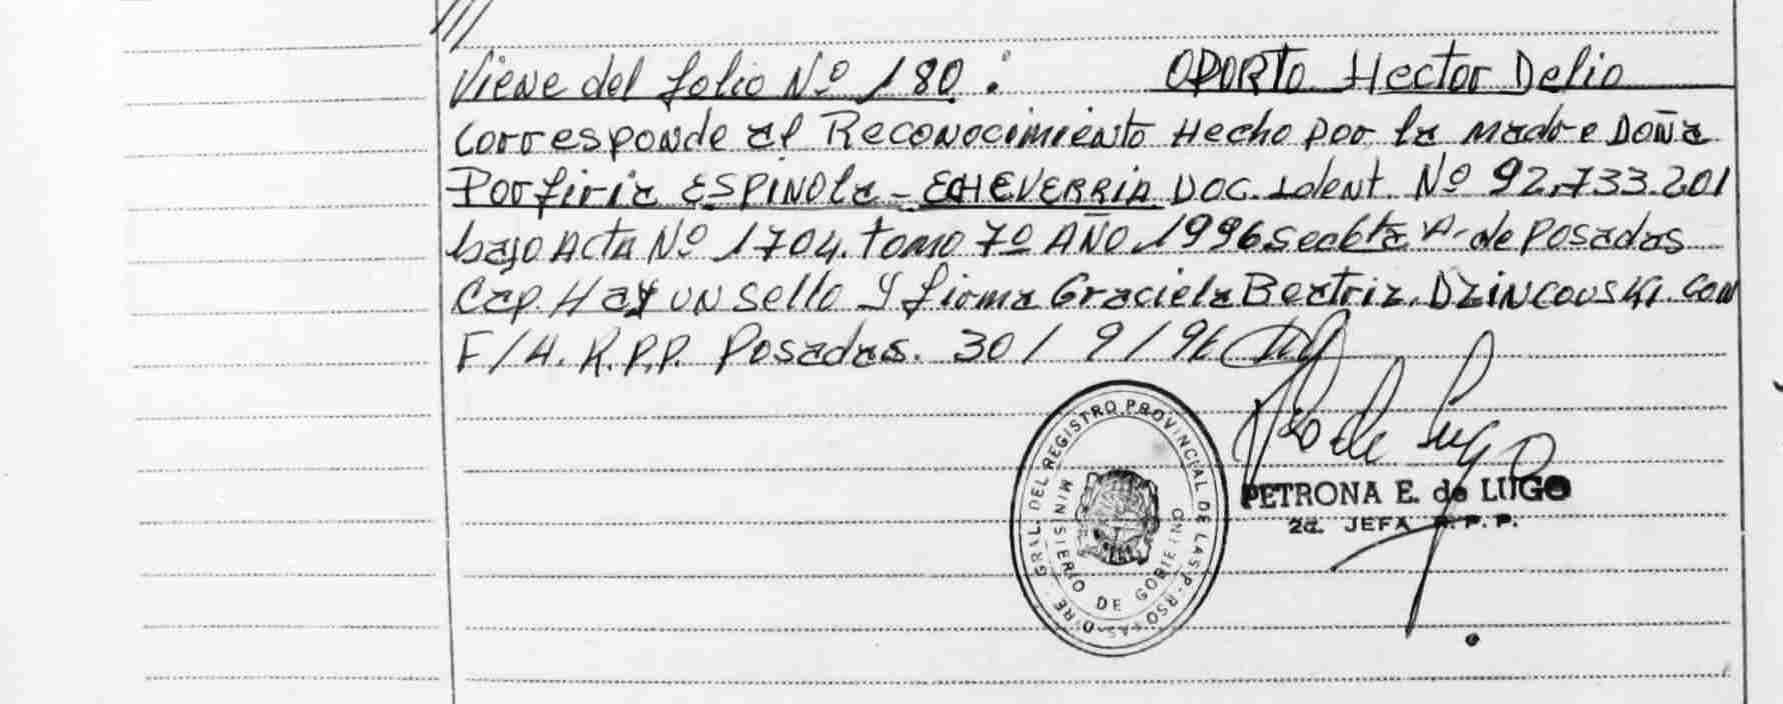 ///
Viene del folio Nº 180: OPORTO Hector Delio
Corresponde al Reconocimiento Hecho por la madre Doña
Porfiria ESPINOla - ECHEVERRIA DOC. Ident. Nº 92.733.201
bajo Acta Nº 1704. tomo 7º AÑO 1996 Seccta A- de Posadas
Cap. Hay un sello y firma Graciela Beatriz DZINCOUSKI con
F/H. R.P.P. Posadas. 30/9/96
PETRONA E. de LUGO
2a. JEFA R.P.P.
DIRE. GRAL. DEL REGISTRO PROVINCIAL DE LAS PERSONAS
MINISTERIO DE GOBIERNO